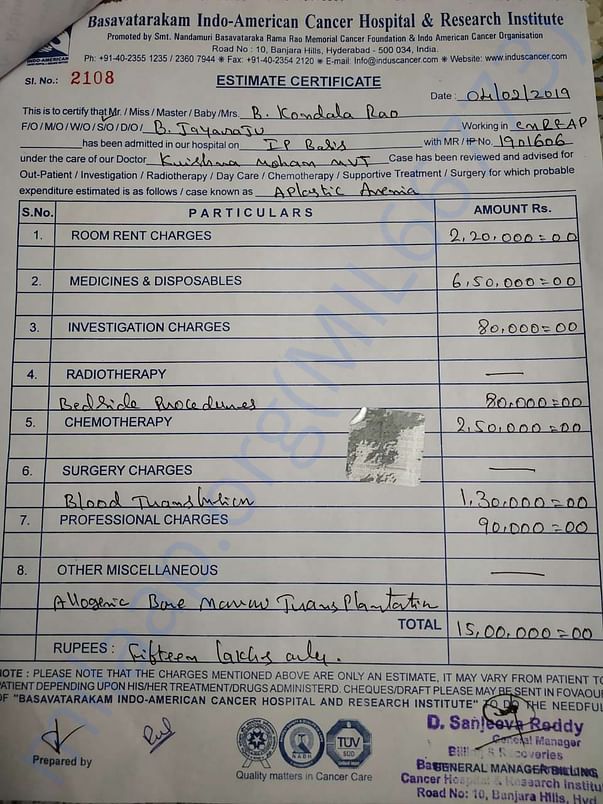 Basavatarakam Indo-American Cancer Hospital & Research Institute
Promoted by Smt. Nandamuri Basavataraka Rama Rao Memorial Cancer Foundation & Indo American Cancer Organisation
Road No : 10, Banjara Hills, Hyderabad - 500 034, India.
Ph: +91-40-2355 1235 / 2360 7944 ✳ Fax: +91-40-2354 2120 ✳ E-mail: Info@induscancer.com ✳ Website: www.induscancer.com
INDO-AMERICAN
SI. No.: 2108
ESTIMATE CERTIFICATE
Date : 04/02/2019
This is to certify that Mr. / Miss / Master / Baby /Mrs. B. Kondala Rao
F/O / M/O / W/O / S/O / D/O / B. Jayaraju Working in CMRRAP
has been admitted in our hospital on IP Basis with MR / IP No. 1901606
under the care of our Doctor Krishna Mohan MVT Case has been reviewed and advised for
Out-Patient / Investigation / Radiotherapy / Day Care / Chemotherapy / Supportive Treatment / Surgery for which probable
expenditure estimated is as follows / case known as Aplastic Anemia
S.No. PARTICULARS AMOUNT Rs.
1. ROOM RENT CHARGES 2,20,000=00
2. MEDICINES & DISPOSABLES 6,50,000=00
3. INVESTIGATION CHARGES 80,000=00
4. RADIOTHERAPY —
Bedside Procedures 80,000=00
5. CHEMOTHERAPY 2,50,000=00
6. SURGERY CHARGES —
Blood Transfusion 1,30,000=00
7. PROFESSIONAL CHARGES 90,000=00
8. OTHER MISCELLANEOUS —
Allogenic Bone Marrow Transplantation
TOTAL 15,00,000=00
RUPEES : Fifteen lakhs only.
NOTE : PLEASE NOTE THAT THE CHARGES MENTIONED ABOVE ARE ONLY AN ESTIMATE, IT MAY VARY FROM PATIENT TO
PATIENT DEPENDING UPON HIS/HER TREATMENT/DRUGS ADMINISTERD. CHEQUES/DRAFT PLEASE MAY BE SENT IN FOVAOUR
OF "BASAVATARAKAM INDO-AMERICAN CANCER HOSPITAL AND RESEARCH INSTITUTE" TO DO THE NEEDFUL
D. Sanjeeva Reddy
General Manager
Billing & Recoveries
GENERAL MANAGER BILLING
Cancer Hospital & Research Institute
Road No: 10, Banjara Hills, Hyd
Prepared by
NABH
TUV
SUD
Quality matters in Cancer Care
milaap.org(MIL66773)